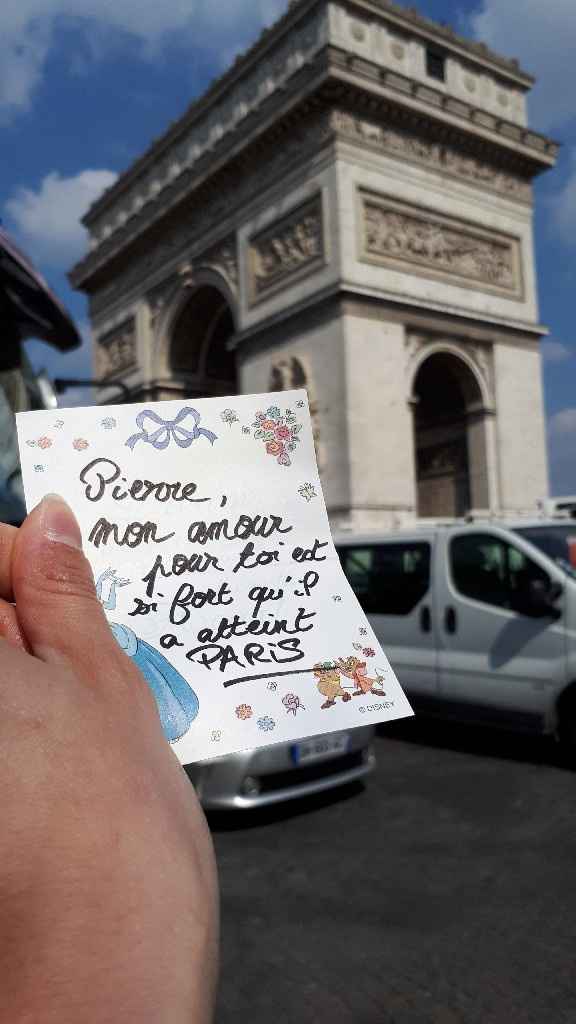 Pierre,
mon amour
pour toi est
si fort qu'il
a atteint
PARIS
© DISNEY